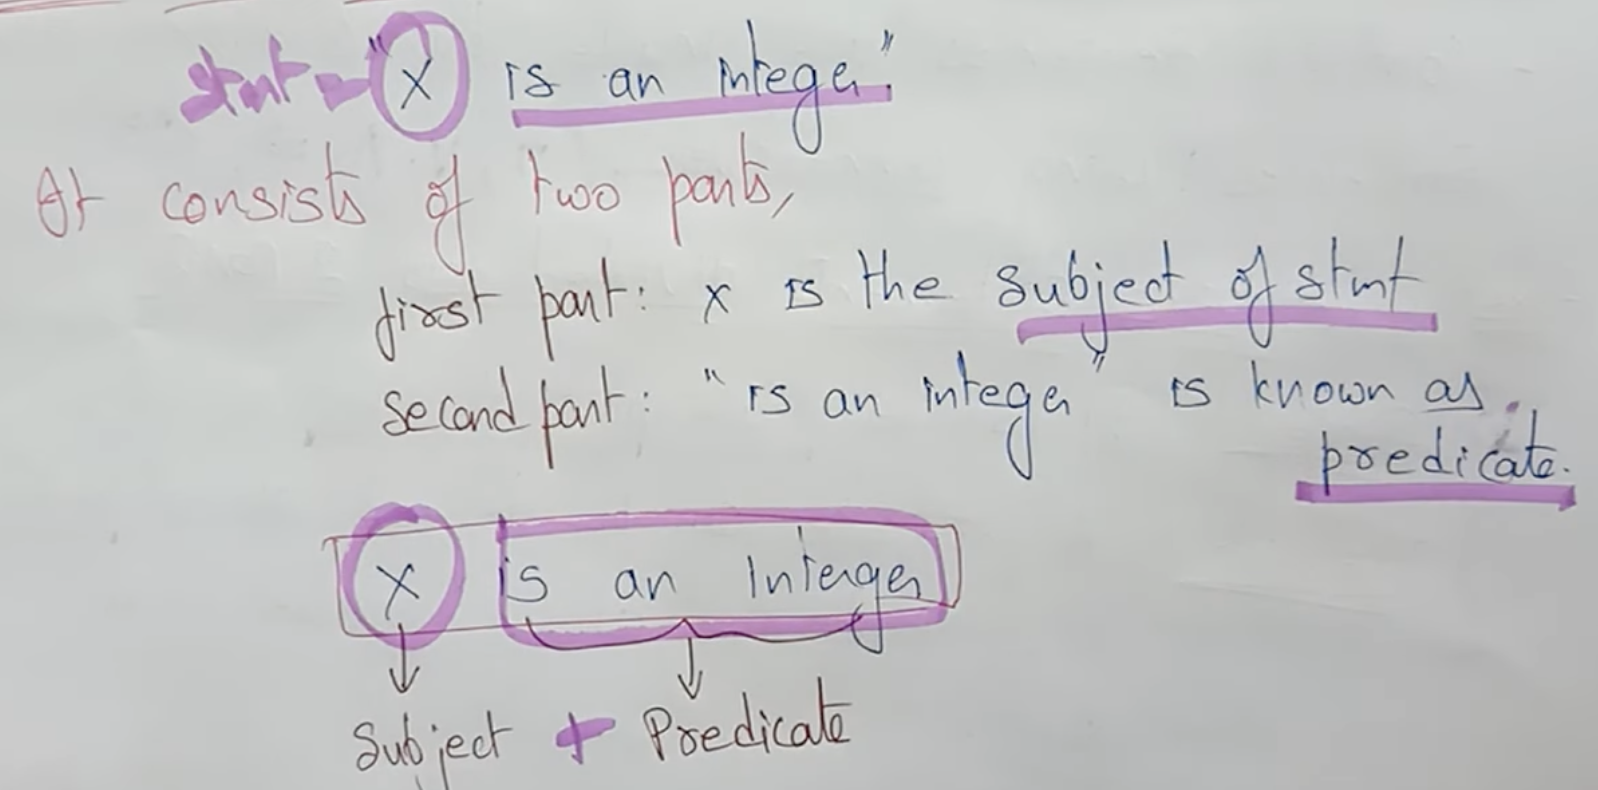 stmt - "X is an integer."
It consists of two parts,
first part: x is the subject of stmt
second part: "is an integer" is known as
predicate.
X is an Interger
Subject + Predicate